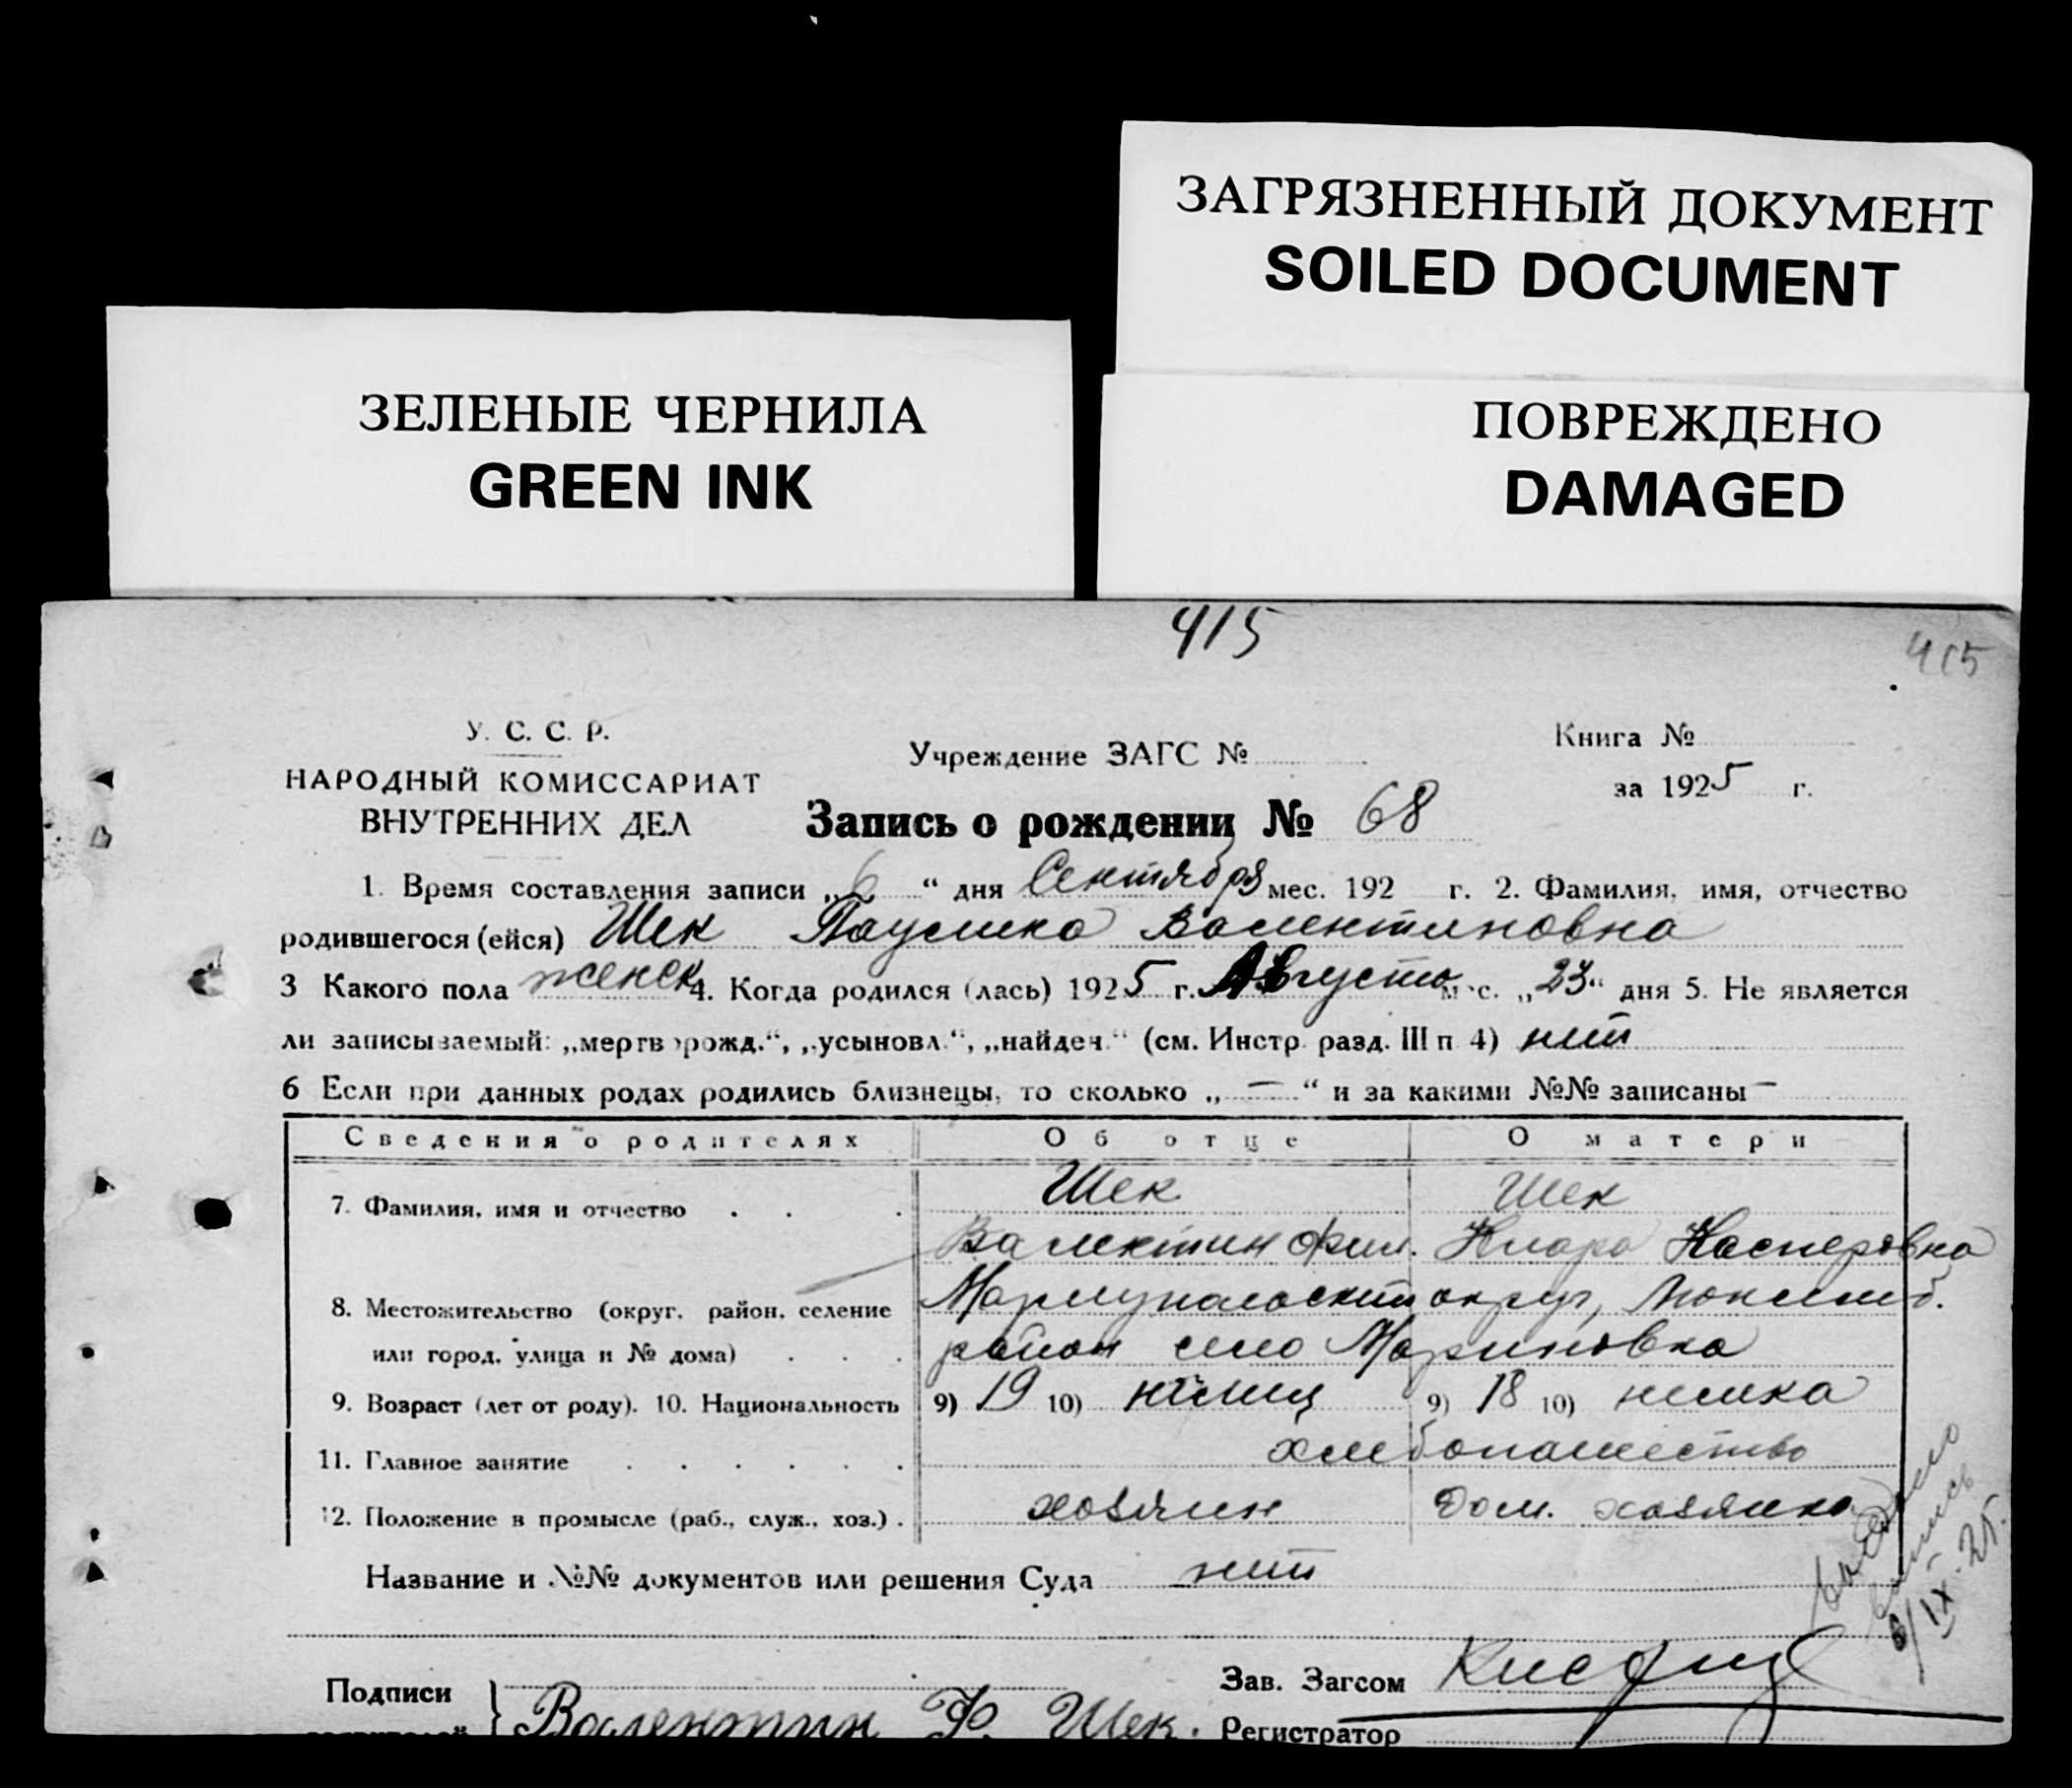 ЗАГРЯЗНЕННЫЙ ДОКУМЕНТ
SOILED DOCUMENT
ЗЕЛЕНЫЕ ЧЕРНИЛА
GREEN INK
ПОВРЕЖДЕНО
DAMAGED
415
415
У. С. С. Р.
НАРОДНЫЙ КОМИССАРИАТ
ВНУТРЕННИХ ДЕЛ
Учреждение ЗАГС №
Книга №
за 1925 г.
Запись о рождении № 68
1. Время составления записи „6“ дня Сентября мес. 192 г. 2. Фамилия, имя, отчество
родившегося (ейся) Шек Паулина Валентиновна
3 Какого пола женск 4. Когда родился (лась) 1925 г. Августа м с. „23“ дня 5. Не является
ли записываемый: „мертворожд.“, „усыновл.“, „найден“ (см. Инстр. разд. III п 4) нет
6 Если при данных родах родились близнецы, то сколько „—“ и за какими №№ записаны —
Сведения о родителях Об отце О матери
7. Фамилия, имя и отчество Шек Шек
Валентин Фил. Клара Касперовна
8. Местожительство (округ, район, селение Мариупольский округ, Люксемб.
или город, улица и № дома) район село Мариновка
9. Возраст (лет от роду). 10. Национальность 9) 19 10) немец 9) 18 10) немка
11. Главное занятие хлебопашество
12. Положение в промысле (раб., служ., хоз.) хозяин дом. хозяйка
Название и №№ документов или решения Суда нет
6/IX-25.
Подписи
Зав. Загсом
Валентин Ф. Шек. Регистратор